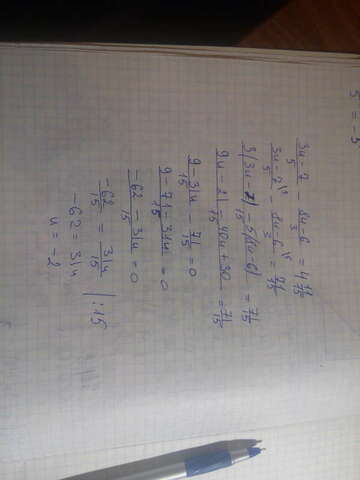 5 = -5
3u - 7/5 - 8u - 6/3 = 4 11/15
3u - 7\3/5 - 8u - 6\5/3 = 71/15
3(3u - 7) - 5(8u - 6)/15 = 71/15
9u - 21 - 40u + 30/15 = 71/15
9 - 31u/15 - 71/15 = 0
9 - 71 - 31u/15 = 0
-62 - 31u/15 = 0
-62/15 = 31u/15 | : 15
-62 = 31u
u = -2